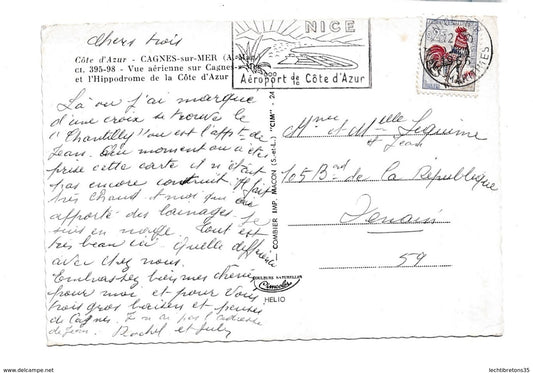 chers trois
Côte d'Azur - CAGNES-sur-MER (A.-Mar.)
ct. 395-98 - Vue aérienne sur Cagnes-s-Mer
et l'Hippodrome de la Côte d'Azur
NICE
Aéroport de la Côte d'Azur
Là où j'ai marqué
d'une croix se trouve le
"Chantilly" où est l'appt de
Jean. Au moment où a été
prise cette carte il n'était
pas encore construit. Il fait
très chaud et moi qui ai
apporté des lainages. Je
suis en nage. Tout est
très beau ici quelle différence
avec chez nous.
Embrassez bien mes chéris
pour moi et pour vous
trois gros baisers et pensées
de Cagnes. Je n'ai pas l'adresse
de Jean. Rachel et July
COMBIER IMP. MACON (S.-et-L.) "CIM"
COULEURS NATURELLES
Cimcolor
HELIO
Mme et M elle Lequime
et Jean
105 Bard de la République
Denain
59
www.delcampe.net
lechtibretons35